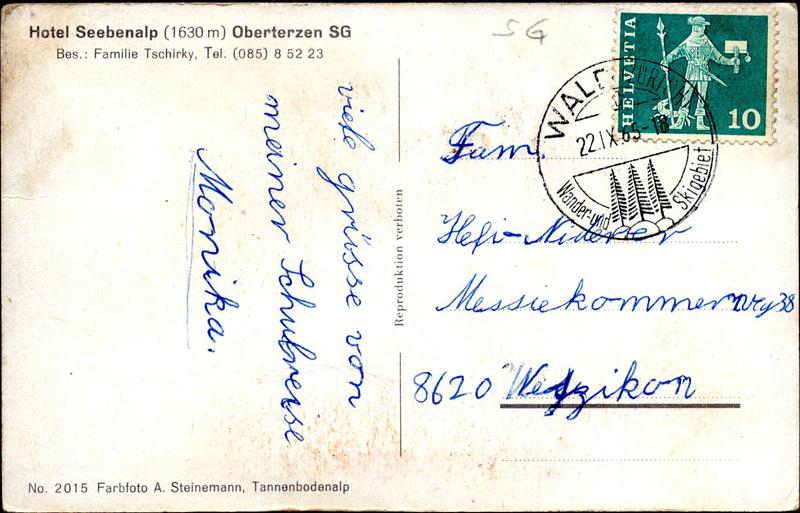 Hotel Seebenalp (1630 m) Oberterzen SG
Bes.: Familie Tschirky, Tel. (085) 8 52 23
SG
HELVETIA
10
WALD
22.IX.65-18
Wander-und
Skigebiet
viele grüsse von
meiner Schulreise
Monika.
Reproduktion verboten
Fam.
Hefi-Niderer
Messiekommerweg 38
8620 Wetzikon
No. 2015 Farbfoto A. Steinemann, Tannenbodenalp